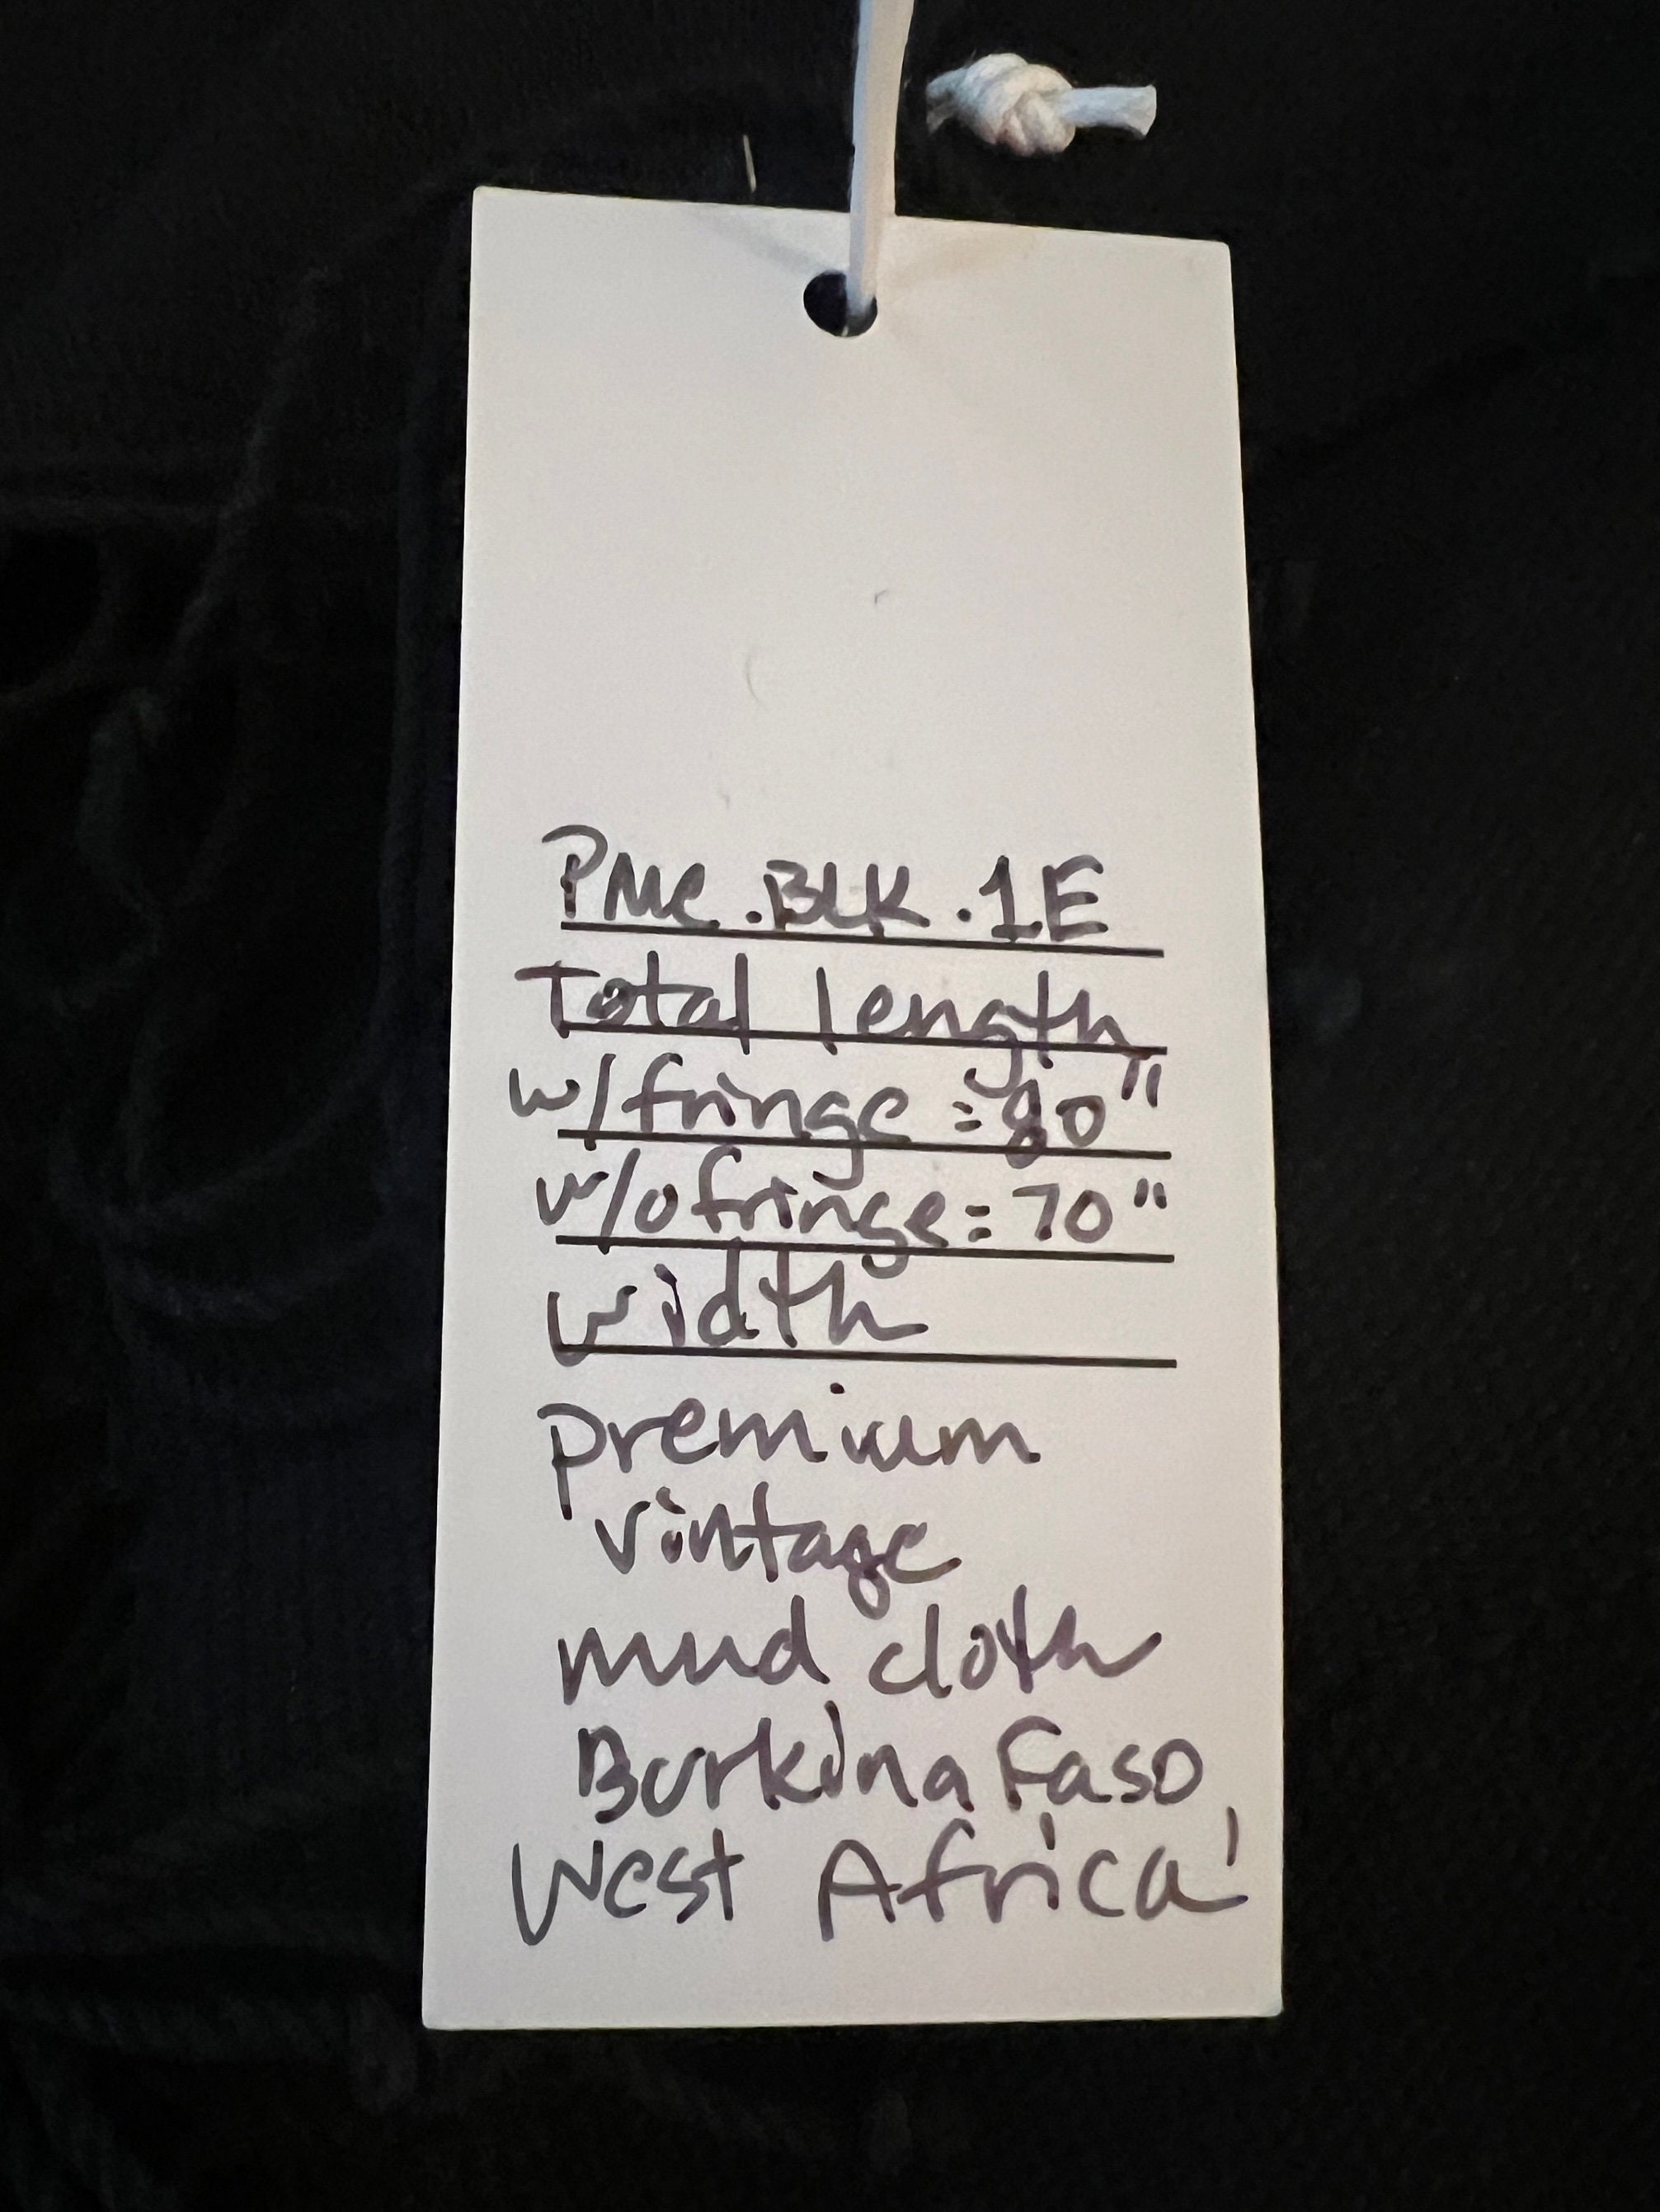 PMC.BLK.1E
Total length
w/fringe = 80"
w/o fringe = 70"
width
premium
vintage
mud cloth
Burkina Faso
West Africa!